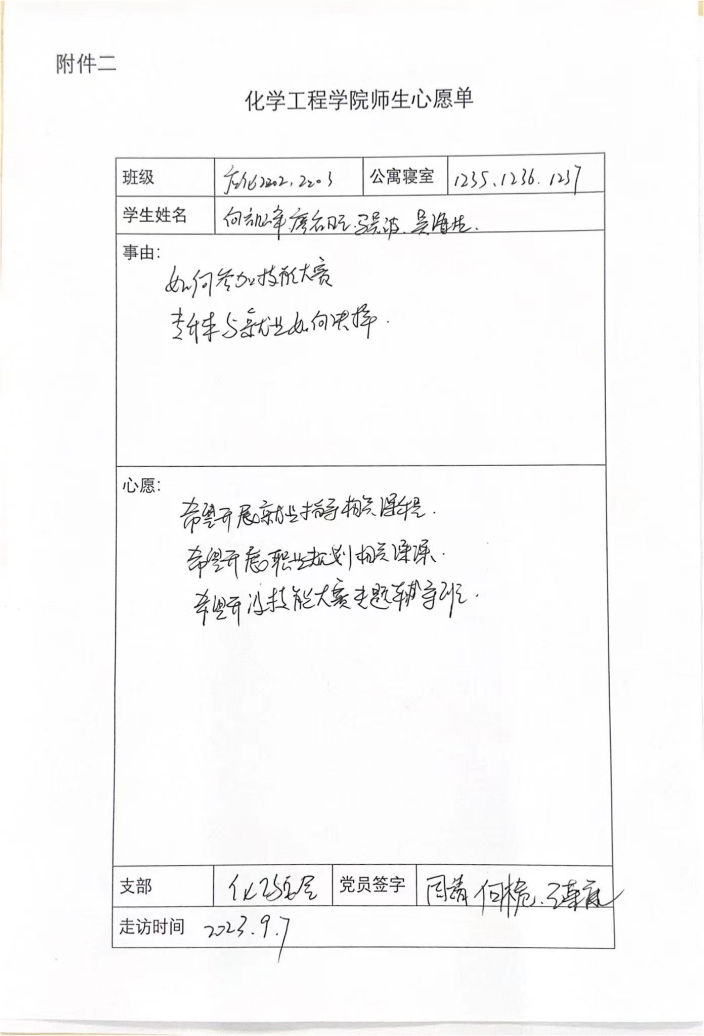 附件二
化学工程学院师生心愿单
班级 应化2202,2203 公寓寝室 1235、1236、1237
学生姓名
事由:
如何参加技能大赛
专升本与就业如何决择.
心愿:
希望开展就业指导相关课程.
希望开展职业规划相关课程.
希望开设技能大赛专题辅导班.
支部 党员签字
走访时间 2023.9.7